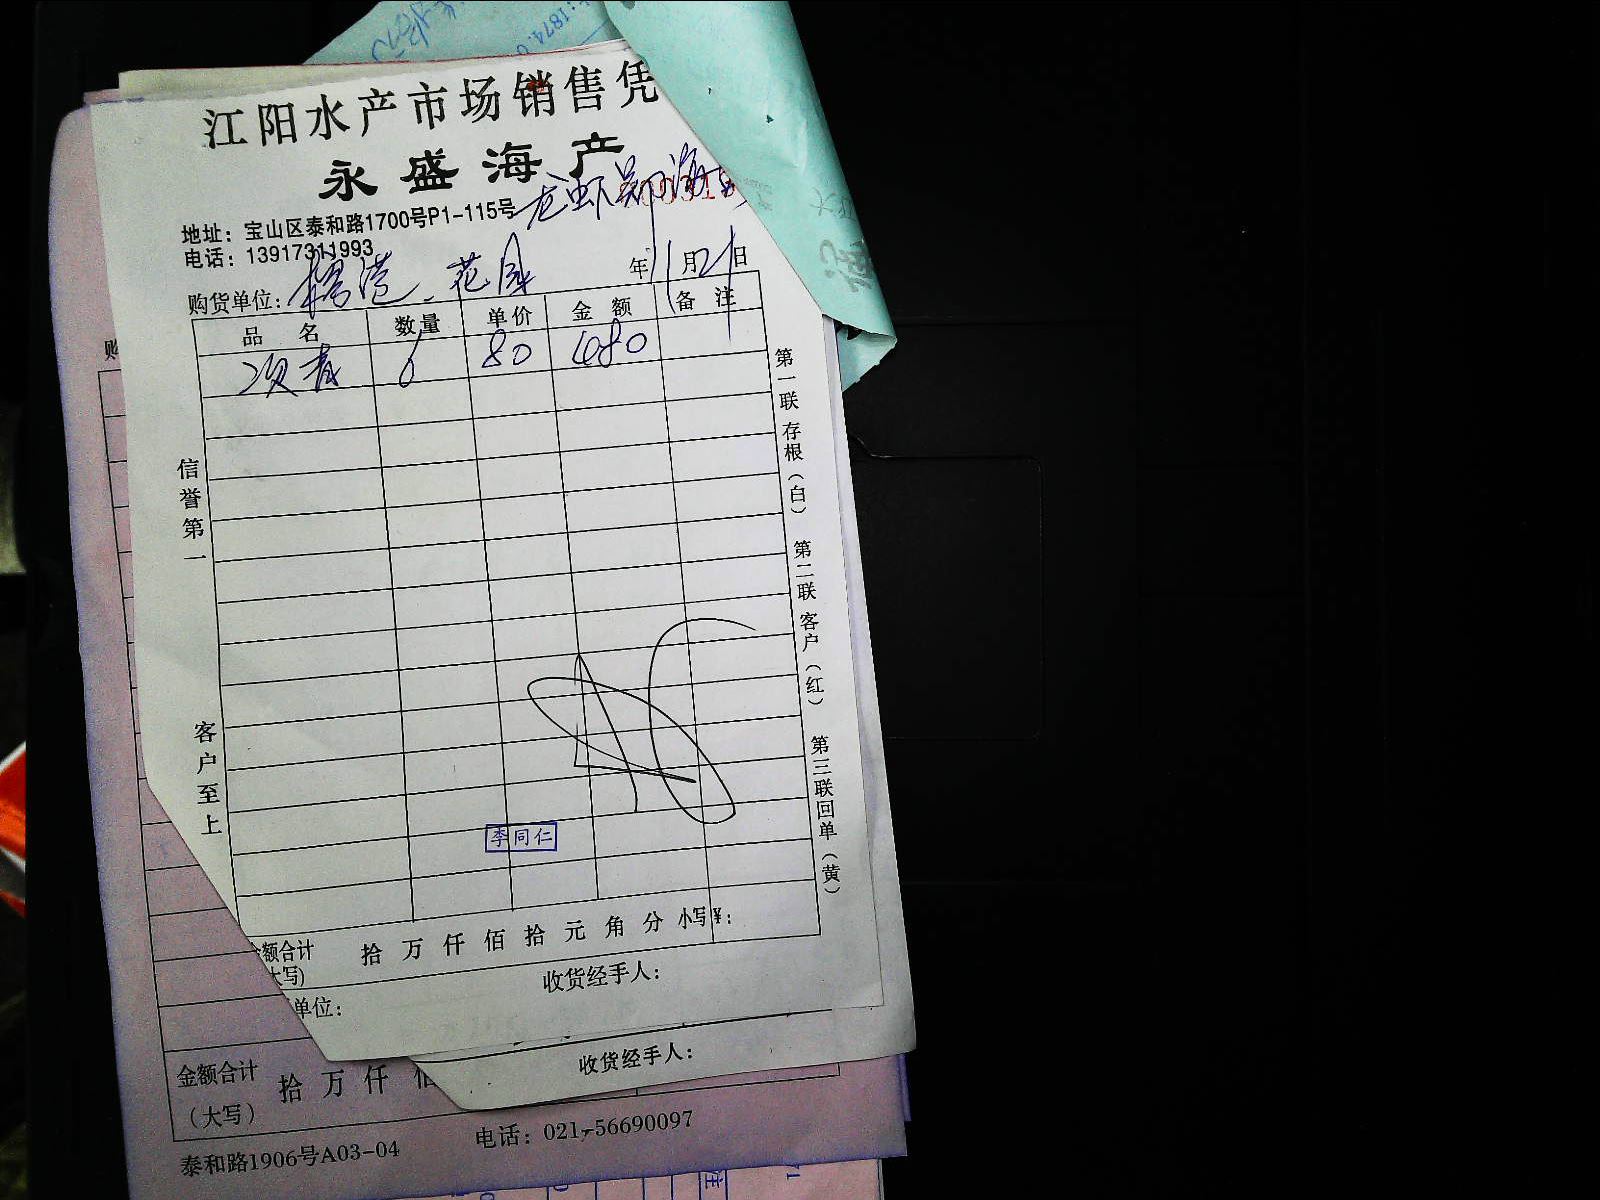 江阳水产市场销售凭
永盛海产
龙虾
地址：宝山区泰和路1700号P1-115号
电话：13917311993
购货单位：
年11月21日
品名 数量 单价 金额 备注
6 80 480
信誉第一
客户至上
第一联存根（白） 第二联客户（红） 第三联回单（黄）
李同仁
金额合计 拾万仟佰拾元角分 小写¥：
大写)
单位：
收货经手人：
收货经手人：
金额合计 拾万仟
（大写）
泰和路1906号A03-04
电话：021-56690097